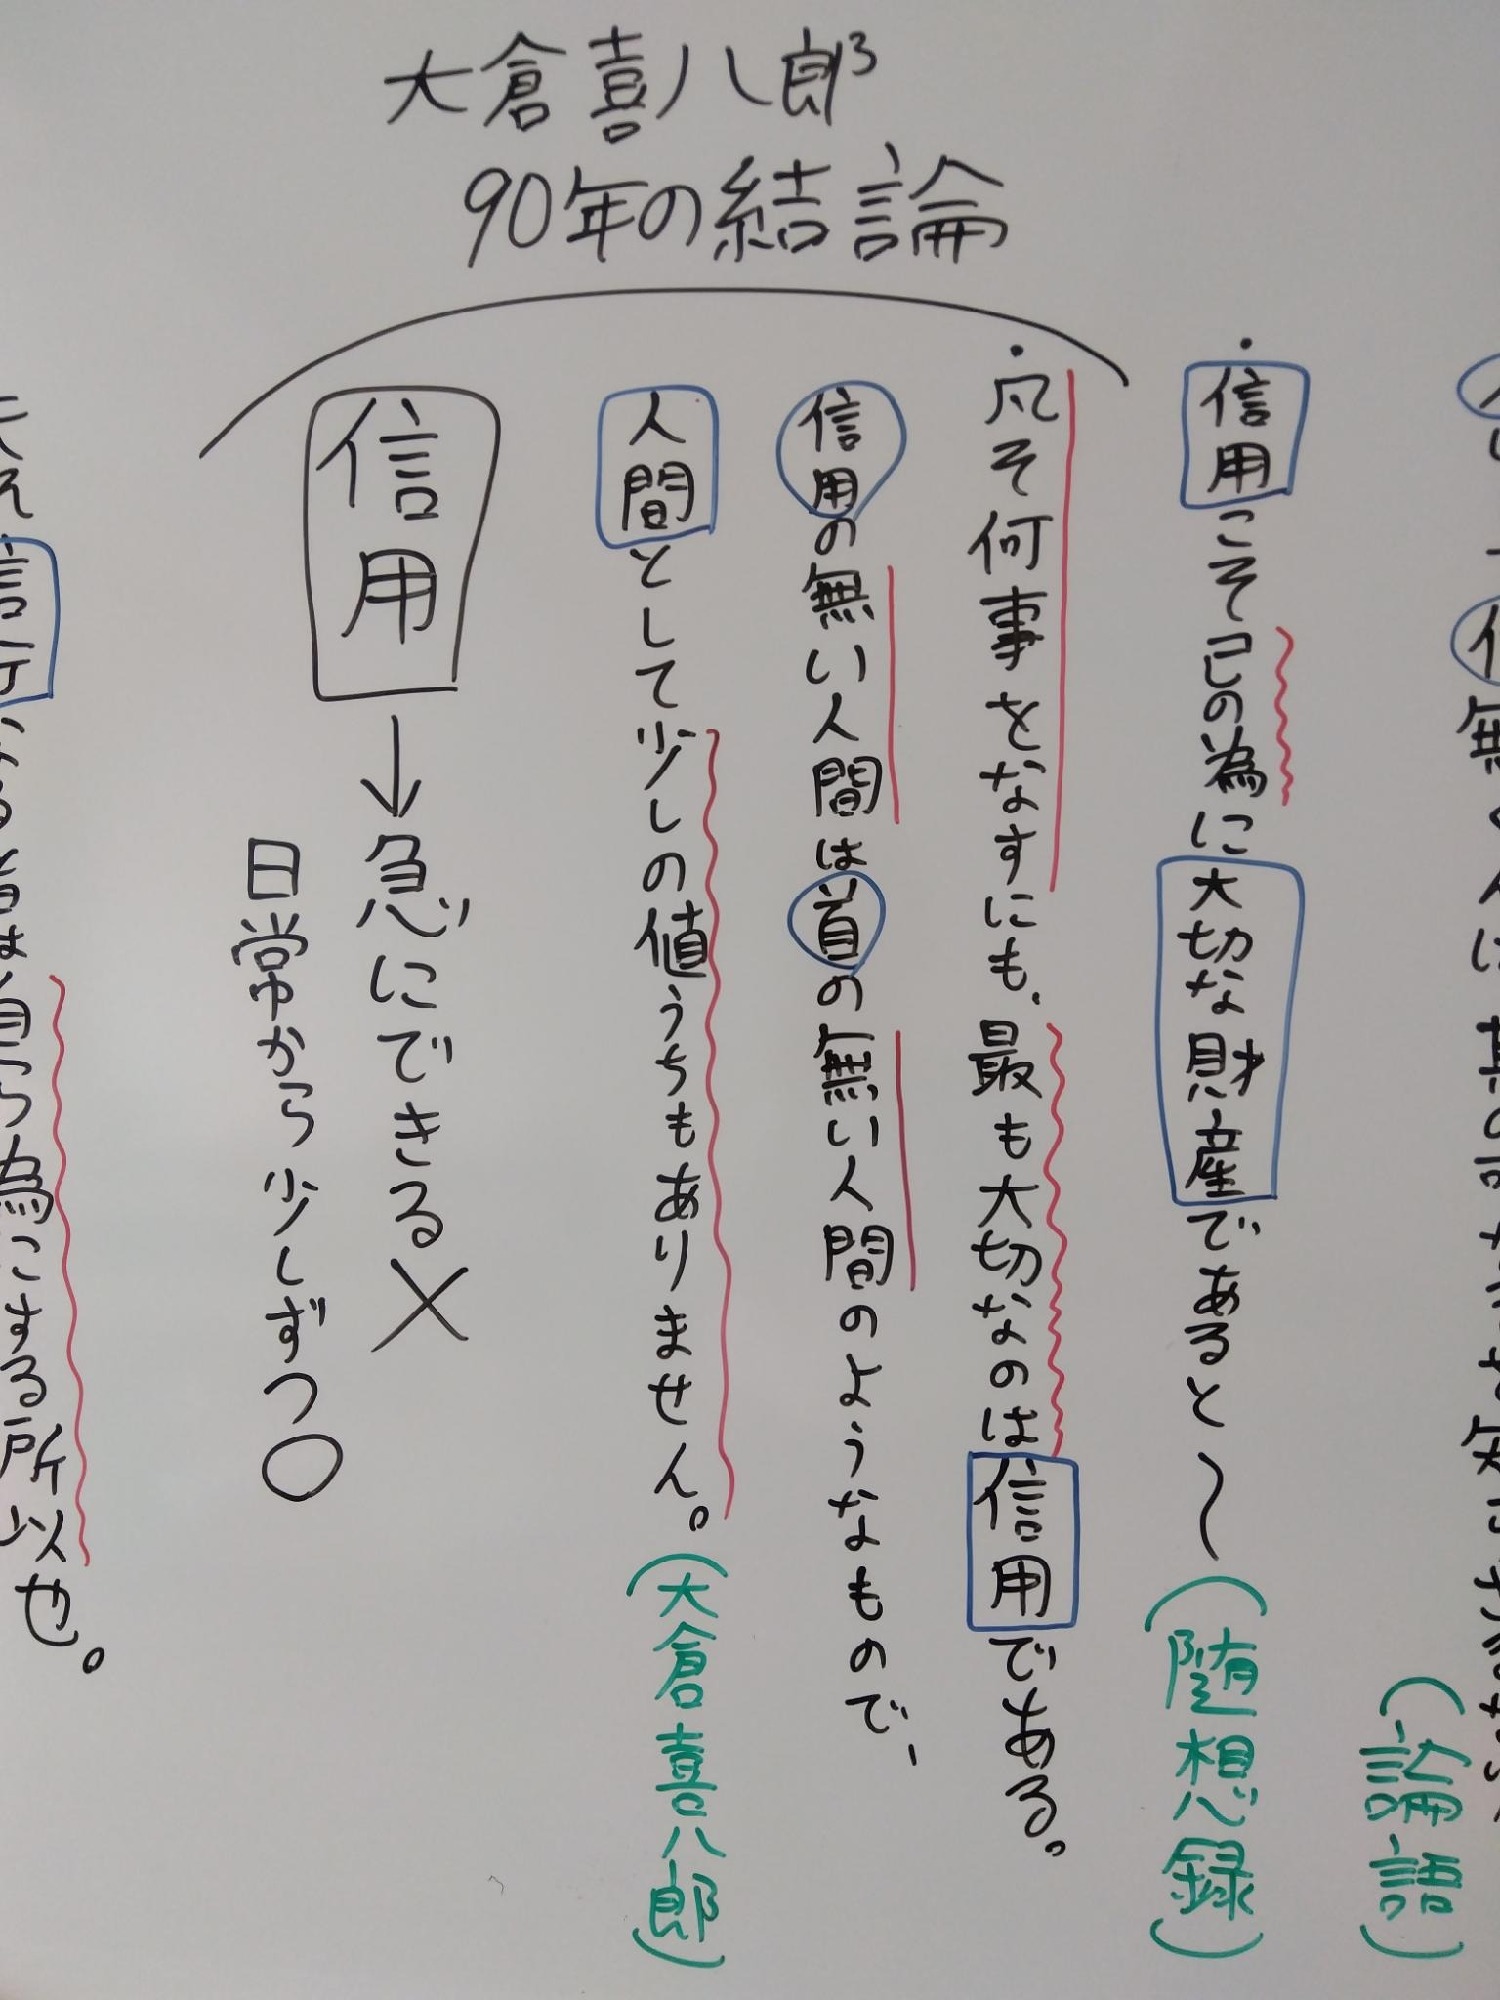 大倉喜八郎
90年の結論
無く人に其の可
(論語)
・信用こそ己の為に大切な財産であると〜(随想録)
・凡そ何事をなすにも、最も大切なのは信用である。
信用の無い人間は首の無い人間のようなもので、
人間として少しの値うちもありません。(大倉喜八郎)
信用→急にできる×
日常から少しずつ○
信行なる者は自ら為にする所以也。